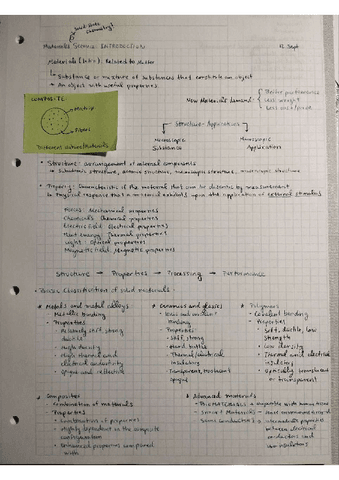 Solid-State
Chemistry!
Materials Science: INTRODUCTION
12 Sept
Materials (Intro): Related to Matter
↳ Substance or mixture of substances that constitute an object
↳ An object with useful properties
COMPOSITE
Matrix
Fibers
Different nature materials
New Materials demand:
Better performance
Less weight
Structure-Application
Microscopic
Substance
Macroscopic
Application
• Structure: arrangement of internal components
↳ Subatomic structure, atomic structure, microscopic structure, macroscopic structure
• Property: Characteristic of the material that can be described by measurement
↳ Physical response that a material exhibits upon the application of external stimulus
Force: Mechanical properties
Chemicals: Chemical properties
Electric field: Electrical properties
Heat energy: Thermal properties
Light: Optical properties
Magnetic field: Magnetic properties
Structure → Properties → Processing → Performance
• Basic Classification of solid materials:
* Metals and metal alloys
- Metallic bonding
- Properties
• Relatively stiff, strong
ductile
• High density
• High thermal and
electrical conductivity
• Opaque and reflective
* Ceramics and glasses
- Ionic and covalent
bonding
- Properties
• Stiff, strong
• Hard, brittle
• Thermal/electrical
insulating
• Transparent, translucent
opaque
* Polymers
- Covalent bonding
- Properties
• Soft, ductile, low
strength
• Low density
• Thermal and electrical
insulating
• Optically translucent
or transparent
* Composites
- Combination of materials
- Properties
• Combination of properties
• Highly dependent on the composite
configuration
• Enhanced properties compared
with
* Advanced materials
- Biomaterials: compatible with human tissue
- Smart Materials:
- Semiconductors: intermediate properties
between electrical
conductors and
insulators